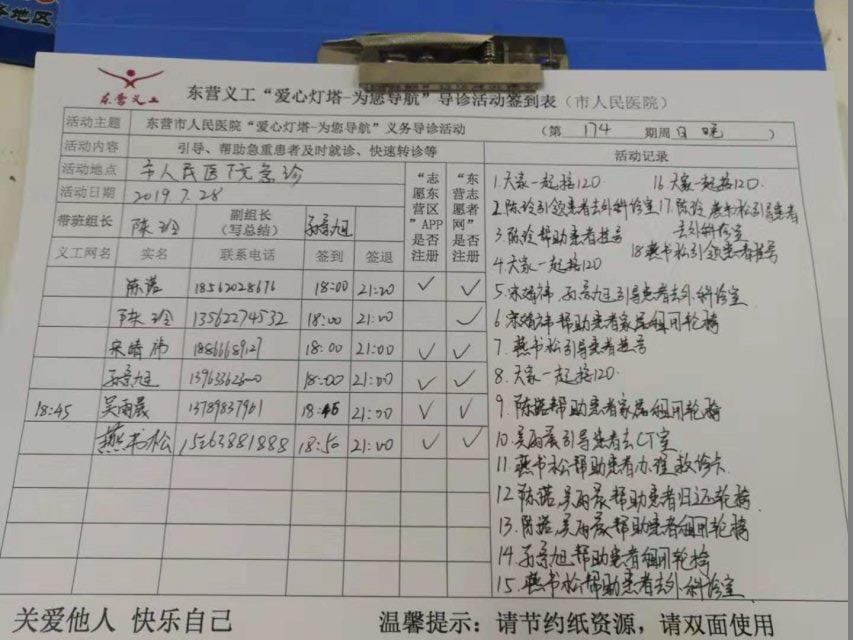 务地区
东营义工
东营义工“爱心灯塔-为您导航”导诊活动签到表（市人民医院）
活动主题 东营市人民医院“爱心灯塔-为您导航”义务导诊活动 （第 174 期周日晚 ）
活动内容 引导、帮助急重患者及时就诊、快速转诊等
活动地点 市人民医院急诊
活动日期 2019.7.28
带班组长 陈玲 副组长（写总结） 孙景旭
“志愿东营区”APP是否注册
“东营志愿者网”是否注册
义工网名 实名 联系电话 签到 签退
陈诺 18562028676 18:00 21:20 ✓ ✓
陈玲 13562274532 18:00 21:00 ✓
宋靖祎 18866689127 18:00 21:00 ✓ ✓
孙景旭 13963362300 18:00 21:00 ✓ ✓
18:45 吴雨晨 13789837961 18:45 21:00 ✓ ✓
燕书松 15263881888 18:50 21:00 ✓ ✓
活动记录
1.大家一起接120. 16.大家一起接120.
2.陈玲引领患者去外科诊室 17.陈玲 燕书松引导患者去外科诊室
3.陈玲帮助患者挂号 18燕书松引领患者挂号
4.大家一起接120
5.宋靖祎 孙景旭引导患者去外科诊室
6宋靖祎帮助患者家属租用轮椅
7.燕书松引导患者挂号
8.大家一起接120.
9.陈诺帮助患者家属租用轮椅
10.吴雨晨引导患者去CT室
11.燕书松帮助患者办理救诊卡
12陈诺.吴雨晨帮助患者归还轮椅
13.陈诺.吴雨晨帮助患者租用轮椅
14.孙景旭帮助患者租用轮椅
15.燕书松帮助患者去外科诊室
关爱他人 快乐自己 温馨提示：请节约纸资源，请双面使用